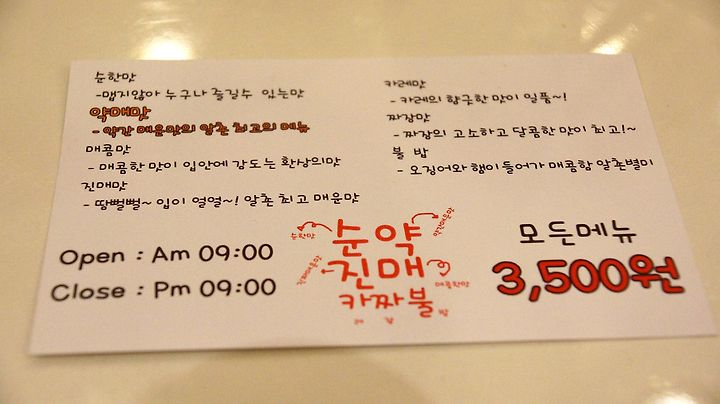 순한맛
-맵지않아 누구나 즐길수 있는맛
약매맛
- 약간 매운맛의 알촌 최고의 메뉴
매콤맛
- 매콤한 맛이 입안에 감도는 환상의맛
진매맛
- 땀뻘뻘~ 입이 얼얼~! 알촌 최고 매운맛
카레맛
- 카레의 향긋한 맛이 일품~!
짜장맛
- 짜장의 고소하고 달콤한 맛이 최고!~
불 밥
- 오징어와 햄이 들어가 매콤함 알촌별미
Open : Am 09:00
Close : Pm 09:00
순한맛
순약
약간매운맛
진매
매콤한맛
카짜불
레 장 밥
모든메뉴
3,500원